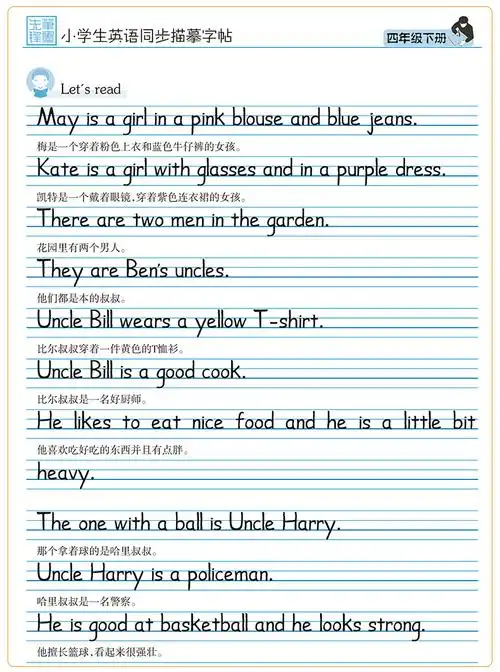 小学生英语同步描摹字帖
四年级下册
Let's read
May is a girl in a pink blouse and blue jeans.
梅是一个穿着粉色上衣和蓝色牛仔裤的女孩。
Kate is a girl with glasses and in a purple dress.
凯特是一个戴着眼镜,穿着紫色连衣裙的女孩。
There are two men in the garden.
花园里有两个男人。
They are Ben's uncles.
他们都是本的叔叔。
Uncle Bill wears a yellow T-shirt.
比尔叔叔穿着一件黄色的T恤衫。
Uncle Bill is a good cook.
比尔叔叔是一名好厨师。
He likes to eat nice food and he is a little bit
他喜欢吃好吃的东西并且有点胖。
heavy.
The one with a ball is Uncle Harry.
那个拿着球的是哈里叔叔。
Uncle Harry is a policeman.
哈里叔叔是一名警察。
He is good at basketball and he looks strong.
他擅长篮球,看起来很强壮。